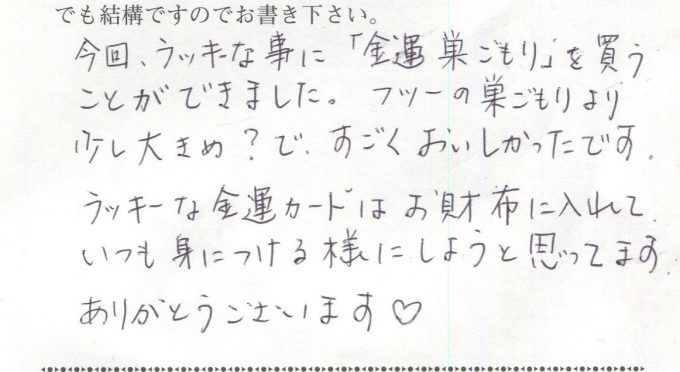 でも結構ですのでお書き下さい。
今回、ラッキーな事に「金運巣ごもり」を買う
ことができました。フツーの巣ごもりより
少し大きめ?で、すごくおいしかったです。
ラッキーな金運カードはお財布に入れて、
いつも身につける様にしようと思ってます。
ありがとうございます♡